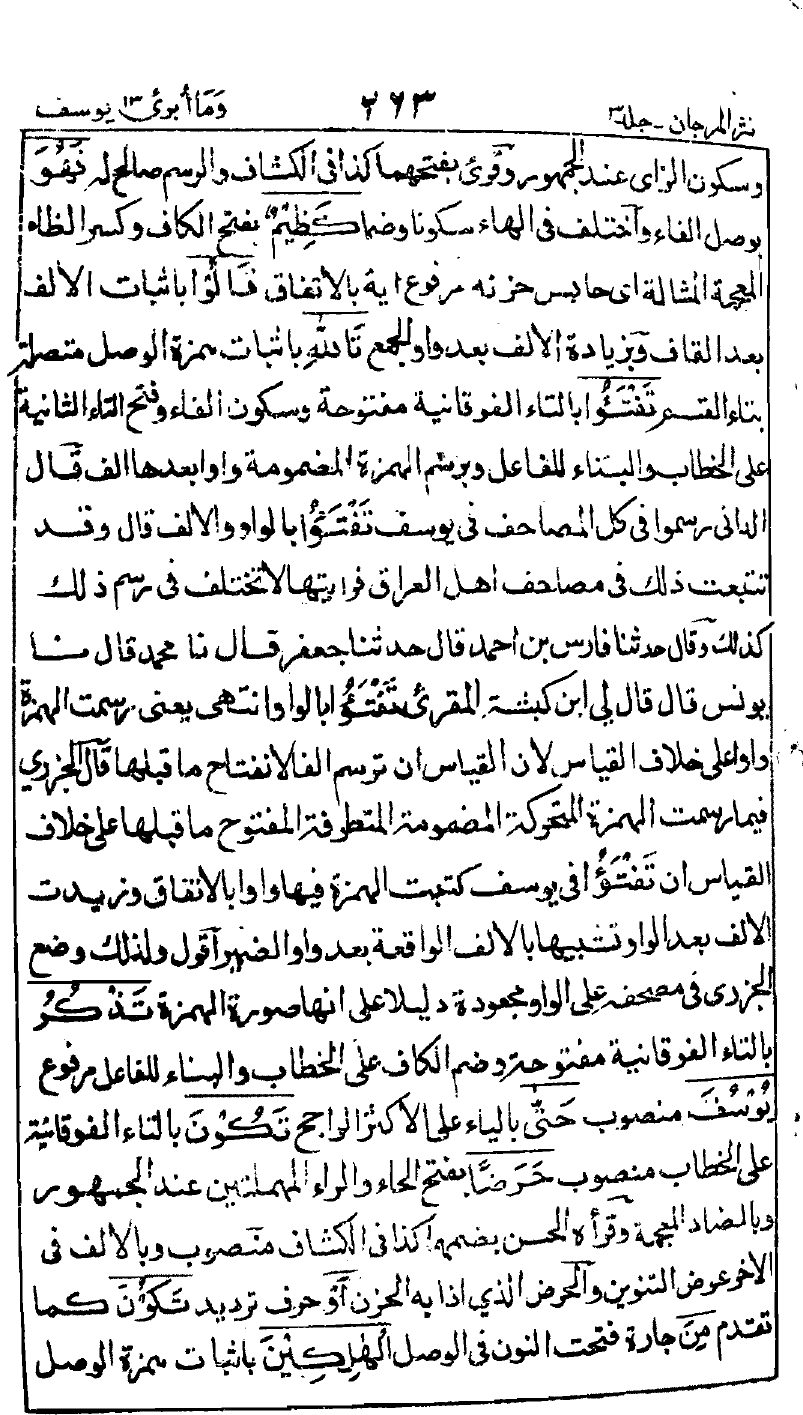 نثر المرجان - جلد ٣ ٢٦٣ وَمَا أبرئ ١٣ يوسف
وسكون الزاى عند الجمهور وقرئ بفتحهما كذا فى الكشاف والرسم صالح له فَهُوَ
بوصل الفاء وآختلف فى الهاء سكونا وضما كَظِيْمٌ بفتح الكاف وكسر الظاء
المعجمة المشالة اى حابس حزنه مرفوع اية بالاتفاق قَالُوْا باثبات الالف
بعد القاف وبزيادة الالف بعد واو الجمع تَاللهِ باثبات همزة الوصل متصلة
بتاء القسم تَفْتَؤُا بالتاء الفوقانية مفتوحة وسكون الفاء وفتح التاء الثانية
على الخطاب والبناء للفاعل وبرسم الهمزة المضمومة واوا بعدها الف قال
الدانى رسموا فى كل المصاحف فى يوسف تَفْتَؤُا بالواو والالف قال وقد
تتبعت ذلك فى مصاحف اهل العراق فرايتها لا تختلف فى رسم ذلك
كذلك وقال حدثنا فارس بن احمد قال حدثنا جعفر قال نا محمد قال نا
يونس قال قال لي ابن كبشة المقرئ تَفْتَؤُا بالواو انتهى يعنى رسمت الهمزة
واوا على خلاف القياس لان القياس ان ترسم الفا لانفتاح ما قبلها قال الجزري
فيما رسمت الهمزة المتحركة المضمومة المتطرفة المفتوح ما قبلها على خلاف
القياس ان تَفْتَؤُا فى يوسف كتبت الهمزة فيها واوا بالاتفاق وزيدت
الالف بعد الواو تشبيها بالالف الواقعة بعد واو الضمير آقول ولذلك وضع
الجزرى فى مصحفه على الواو مجعودة دليلا على انها صورة الهمزة تَذْكُرُ
بالتاء الفوقانية مفتوحة وضم الكاف على الخطاب والبناء للفاعل مرفوع
يُوْسُفَ منصوب حَتّٰى بالياء على الاكثر الراجح تَكُوْنَ بالتاء الفوقانية
على الخطاب منصوب حَرَضًا بفتح الحاء والراء المهملتين عند الجمهور
وبالضاد المعجمة وقرأه الحسن بضمهما كذا فى الكشاف منصوب وبالالف فى
الاخر عوض التنوين والحرض الذي اذابه الحزن أَوْ حرف ترديد تَكُوْنَ كما
تقدم مِنَ جارة فتحت النون فى الوصل الْهٰلِكِيْنَ باثبات همزة الوصل